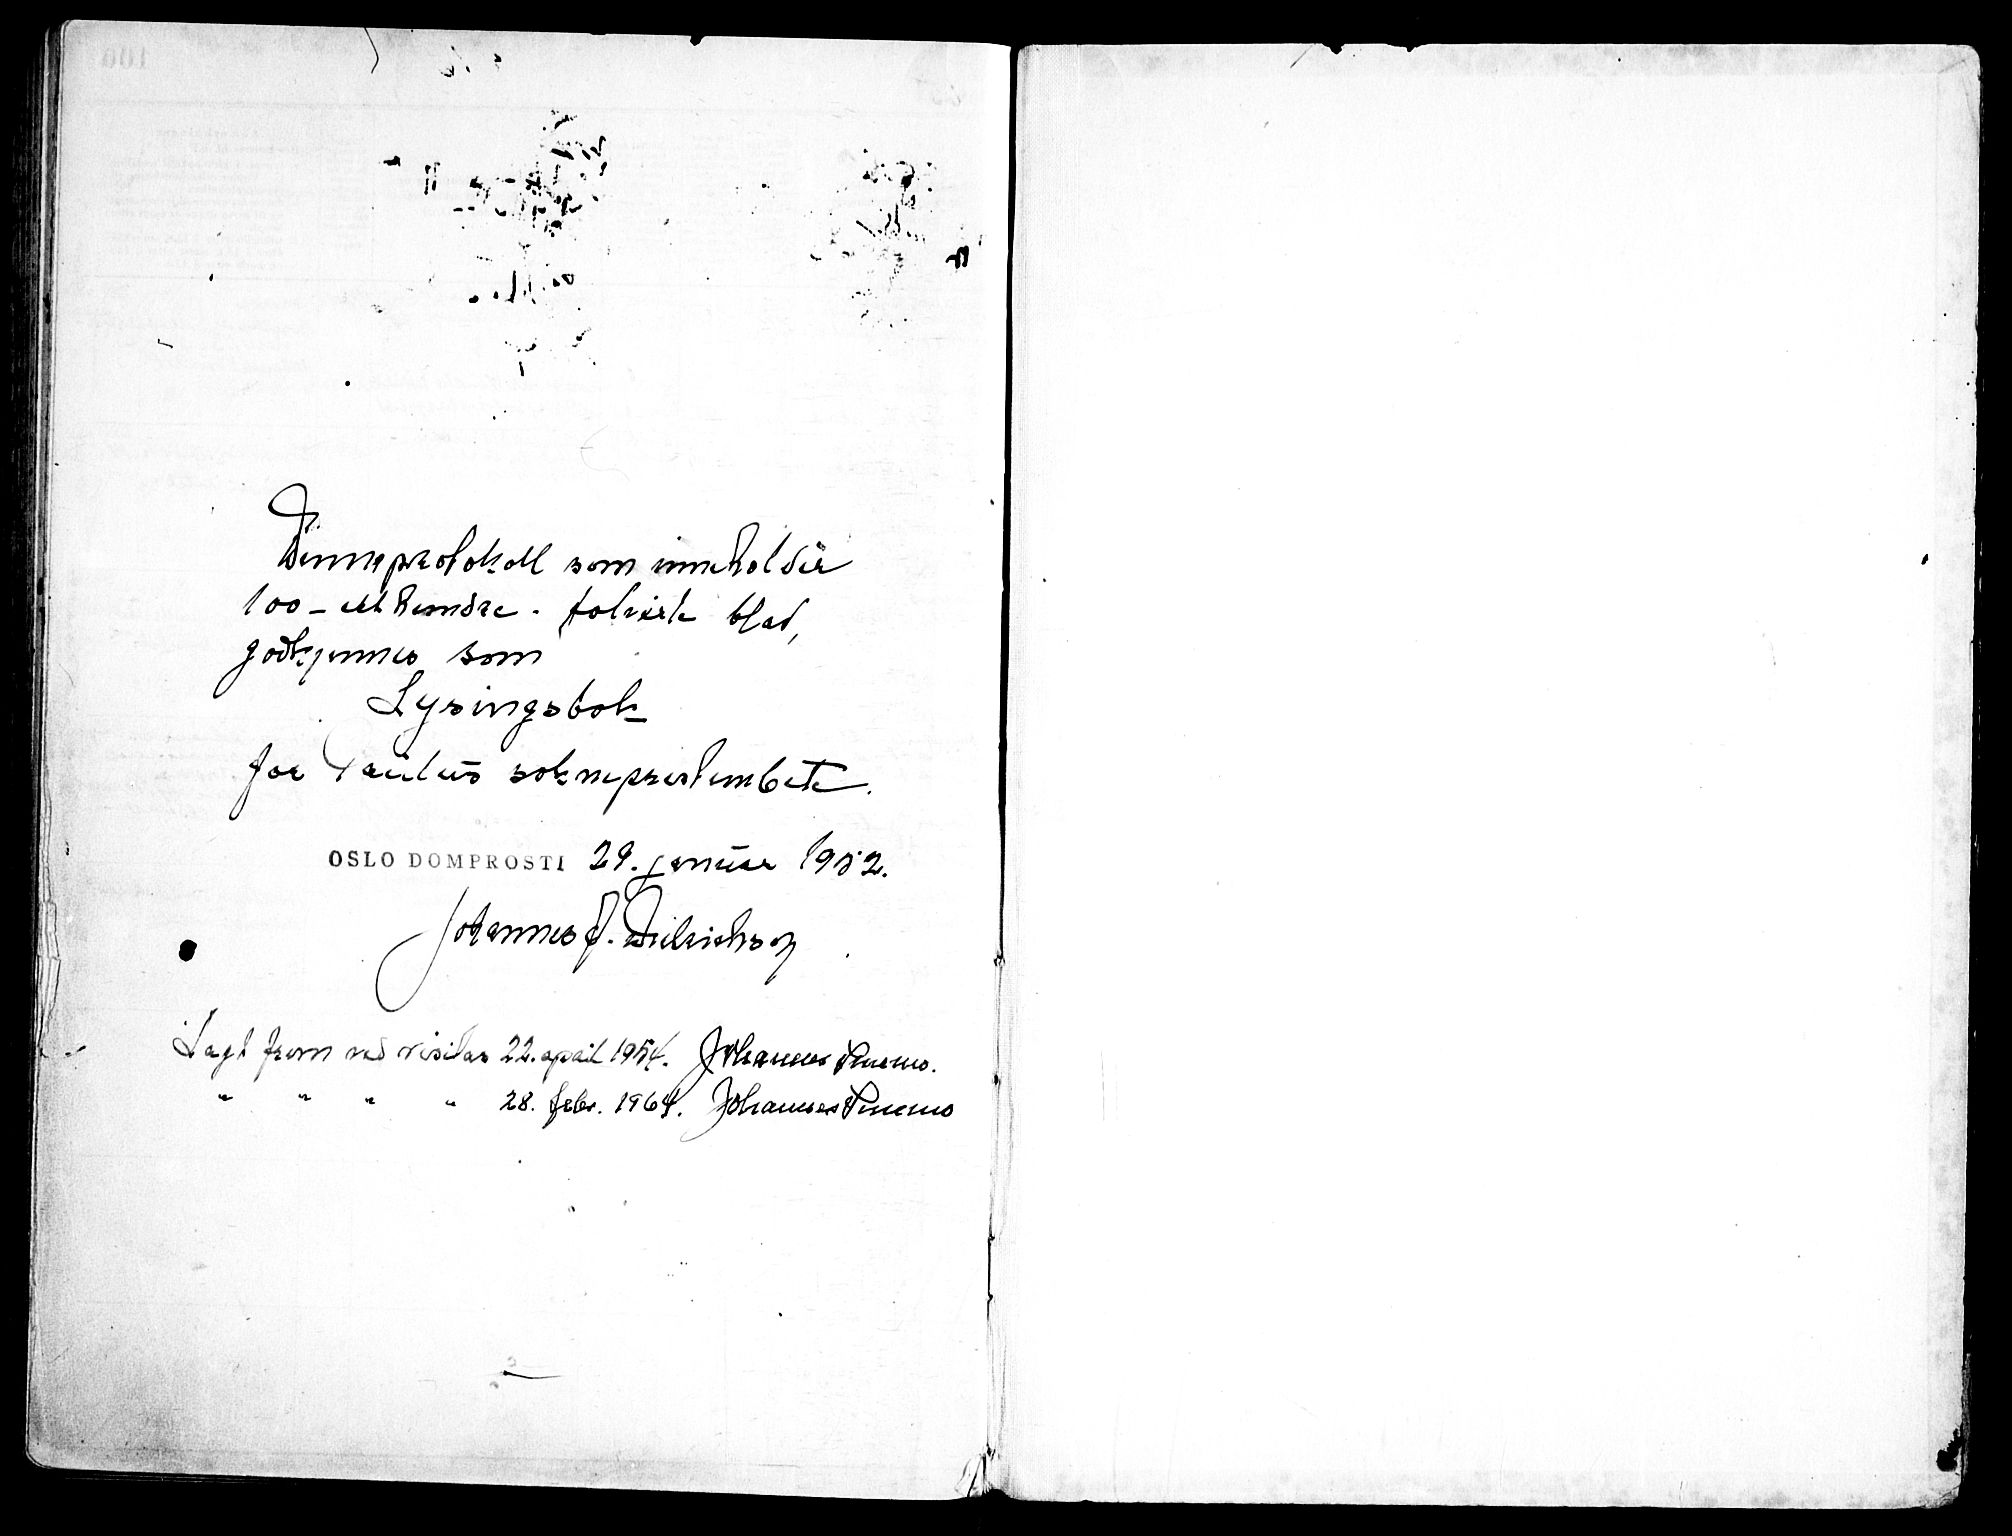 Denne protokoll som inneholder
100 - ett hundre - folierte blad,
godkjennes som
Lysingsbok
for Paulus sokneprestembete.
OSLO DOMPROSTI 29. januar 1952.
Johannes J. Dietrichson
Lagt frem ved visitas 22. april 1954. Johannes Smemo.
" " " " 28. febr. 1964. Johannes Smemo